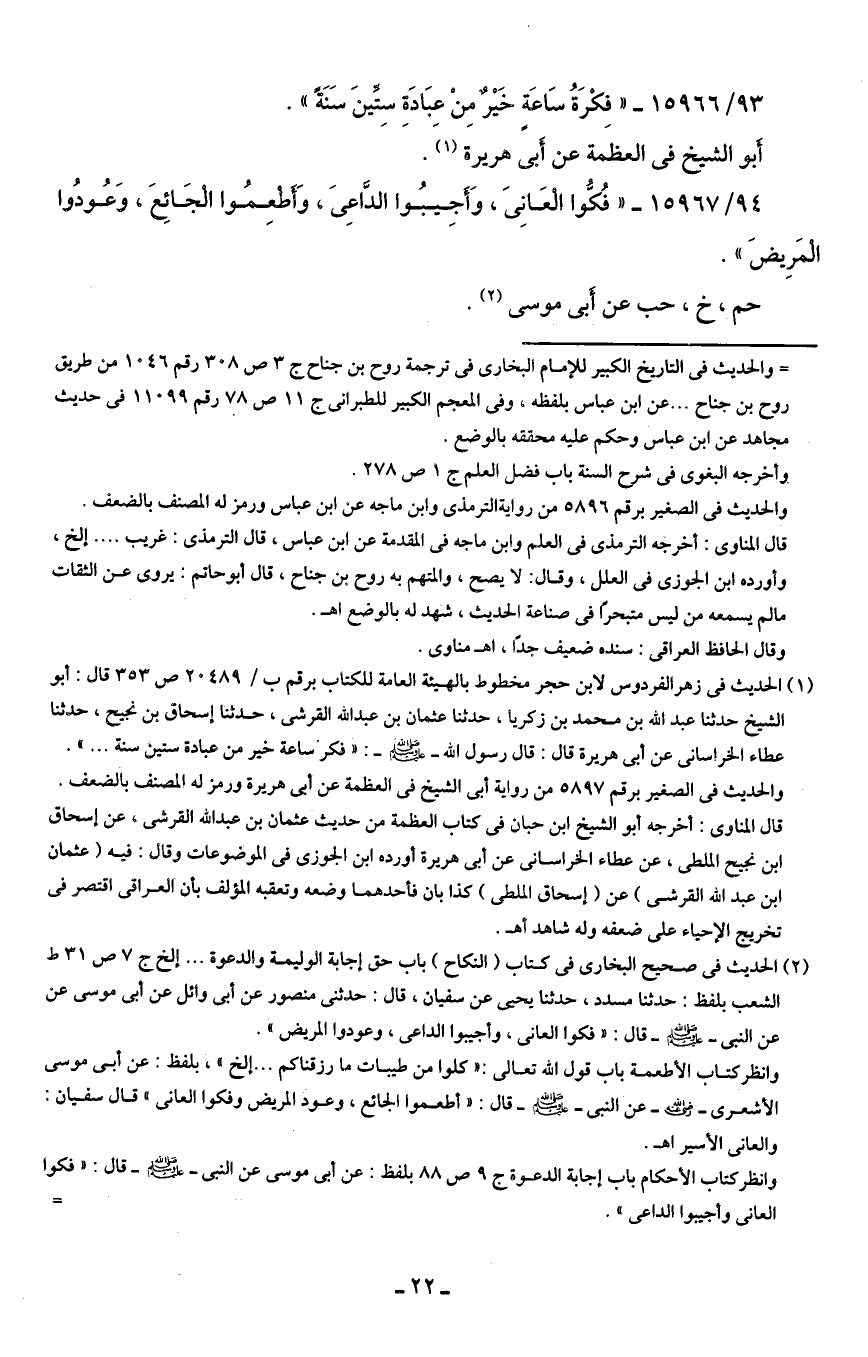 ٩٣/ ١٥٩٦٦ ـ « فِكْرَةُ سَاعَةٍ خَيْرٌ مِنْ عِبَادَةِ سِتِّينَ سَنَةً » .
أبو الشيخ فى العظمة عن أَبى هريرة (١) .
٩٤/ ١٥٩٦٧ ـ « فُكُّوا الْعَـانِىَ ، وَأَجِـيبُـوا الدَّاعِىَ ، وَأَطْعِـمُـوا الْجَـائِعَ ، وَعُـودُوا
الْمَرِيضَ » .
حم ، خ ، حب عن أَبى موسى (٢) .
= والحديث فى التاريخ الكبير للإمـام البخارى فى ترجمة روح بن جناح ج ٣ ص ٣٠٨ رقم ١٠٤٦ من طريق
روح بن جناح ...عن ابن عباس بلفظه ، وفى المعجم الكبير للطبرانى ج ١١ ص ٧٨ رقم ١١٠٩٩ فى حديث
مجاهد عن ابن عباس وحكم عليه محققه بالوضع .
وأخرجه البغوى فى شرح السنة باب فضل العلم ج ١ ص ٢٧٨ .
والحديث فى الصغير برقم ٥٨٩٦ من روايةالترمذى وابن ماجه عن ابن عباس ورمز له المصنف بالضعف .
قال المناوى : أخرجه الترمذى فى العلم وابن ماجه فى المقدمة عن ابن عباس ، قال الترمذى : غريب .... إلخ ،
وأورده ابن الجوزى فى العلل ، وقـال: لا يصح ، والمتهم به روح بن جناح ، قال أبوحاتم : يروى عـن الثقات
مالم يسمعه من ليس متبحرًا فى صناعة الحديث ، شهد له بالوضع اهـ .
وقال الحافظ العراقى : سنده ضعيف جدًا ، اهـ مناوى .
(١) الحديث فى زهرالفردوس لابن حجر مخطوط بالهيئة العامة للكتاب برقم ب / ٢٠٤٨٩ ص ٣٥٣ قال : أبو
الشيخ حدثنا عبد الله بن محمد بن زكريا ، حدثنا عثمان بن عبدالله القرشى ، حـدثنا إسحاق بن نجيح ، حدثنا
عطاء الخراسانى عن أبى هريرة قال : قال رسول الله ـ ﷺ ـ : « فكر ساعة خير من عبادة ستين سنة ... » .
والحديث فى الصغير برقم ٥٨٩٧ من رواية أبى الشيخ فى العظمة عن أبى هريرة ورمز له المصنف بالضعف .
قال المناوى : أخرجه أبو الشيخ ابن حبان فى كتاب العظمة من حديث عثمان بن عبدالله القرشى ، عن إسحاق
ابن نجيح الملطى ، عن عطاء الخراسـانى عن أبى هريرة أورده ابن الجوزى فى الموضوعات وقال : فيـه ( عثمان
ابن عبد الله القرشـى ) عن ( إسحاق الملطى ) كذا بان فأحدهمـا وضعه وتعقبه المؤلف بأن العـراقى اقتصر فى
تخريج الإحياء على ضعفه وله شاهد أهـ .
(٢) الحديث فى صـحيح البخارى فى كـتاب ( النكاح ) باب حق إجابة الوليمـة والدعوة ... إلخ ج ٧ ص ٣١ ط
الشعب بلفظ : حدثنا مسدد ، حدثنا يحيى عن سفيان ، قال : حدثنى منصور عن أبى وائل عن أبى موسى عن
عن النبى ـ ﷺ ـ قال : « فكوا العانى ، وأجيبوا الداعى ، وعودوا المريض » .
وانظر كتـاب الأطعمـة باب قول الله تعـالى :« كلوا من طيبـات ما رزقناكم ...إلخ » ، بلفظ : عن أبـى موسى
الأشعـرى ـ رضي الله عنه ـ عن النبى ـ ﷺ ـ قال : « أطعـموا الجائع ، وعـود المريض وفكوا العانى » قـال سفيان :
والعانى الأسير اهـ .
وانظر كتاب الأحكام باب إجابة الدعـوة ج ٩ ص ٨٨ بلفظ : عن أبى موسى عن النبى ـ ﷺ ـ قال : « فكوا
العانى وأجيبوا الداعى » .
=
ـ ٢٢ ـ